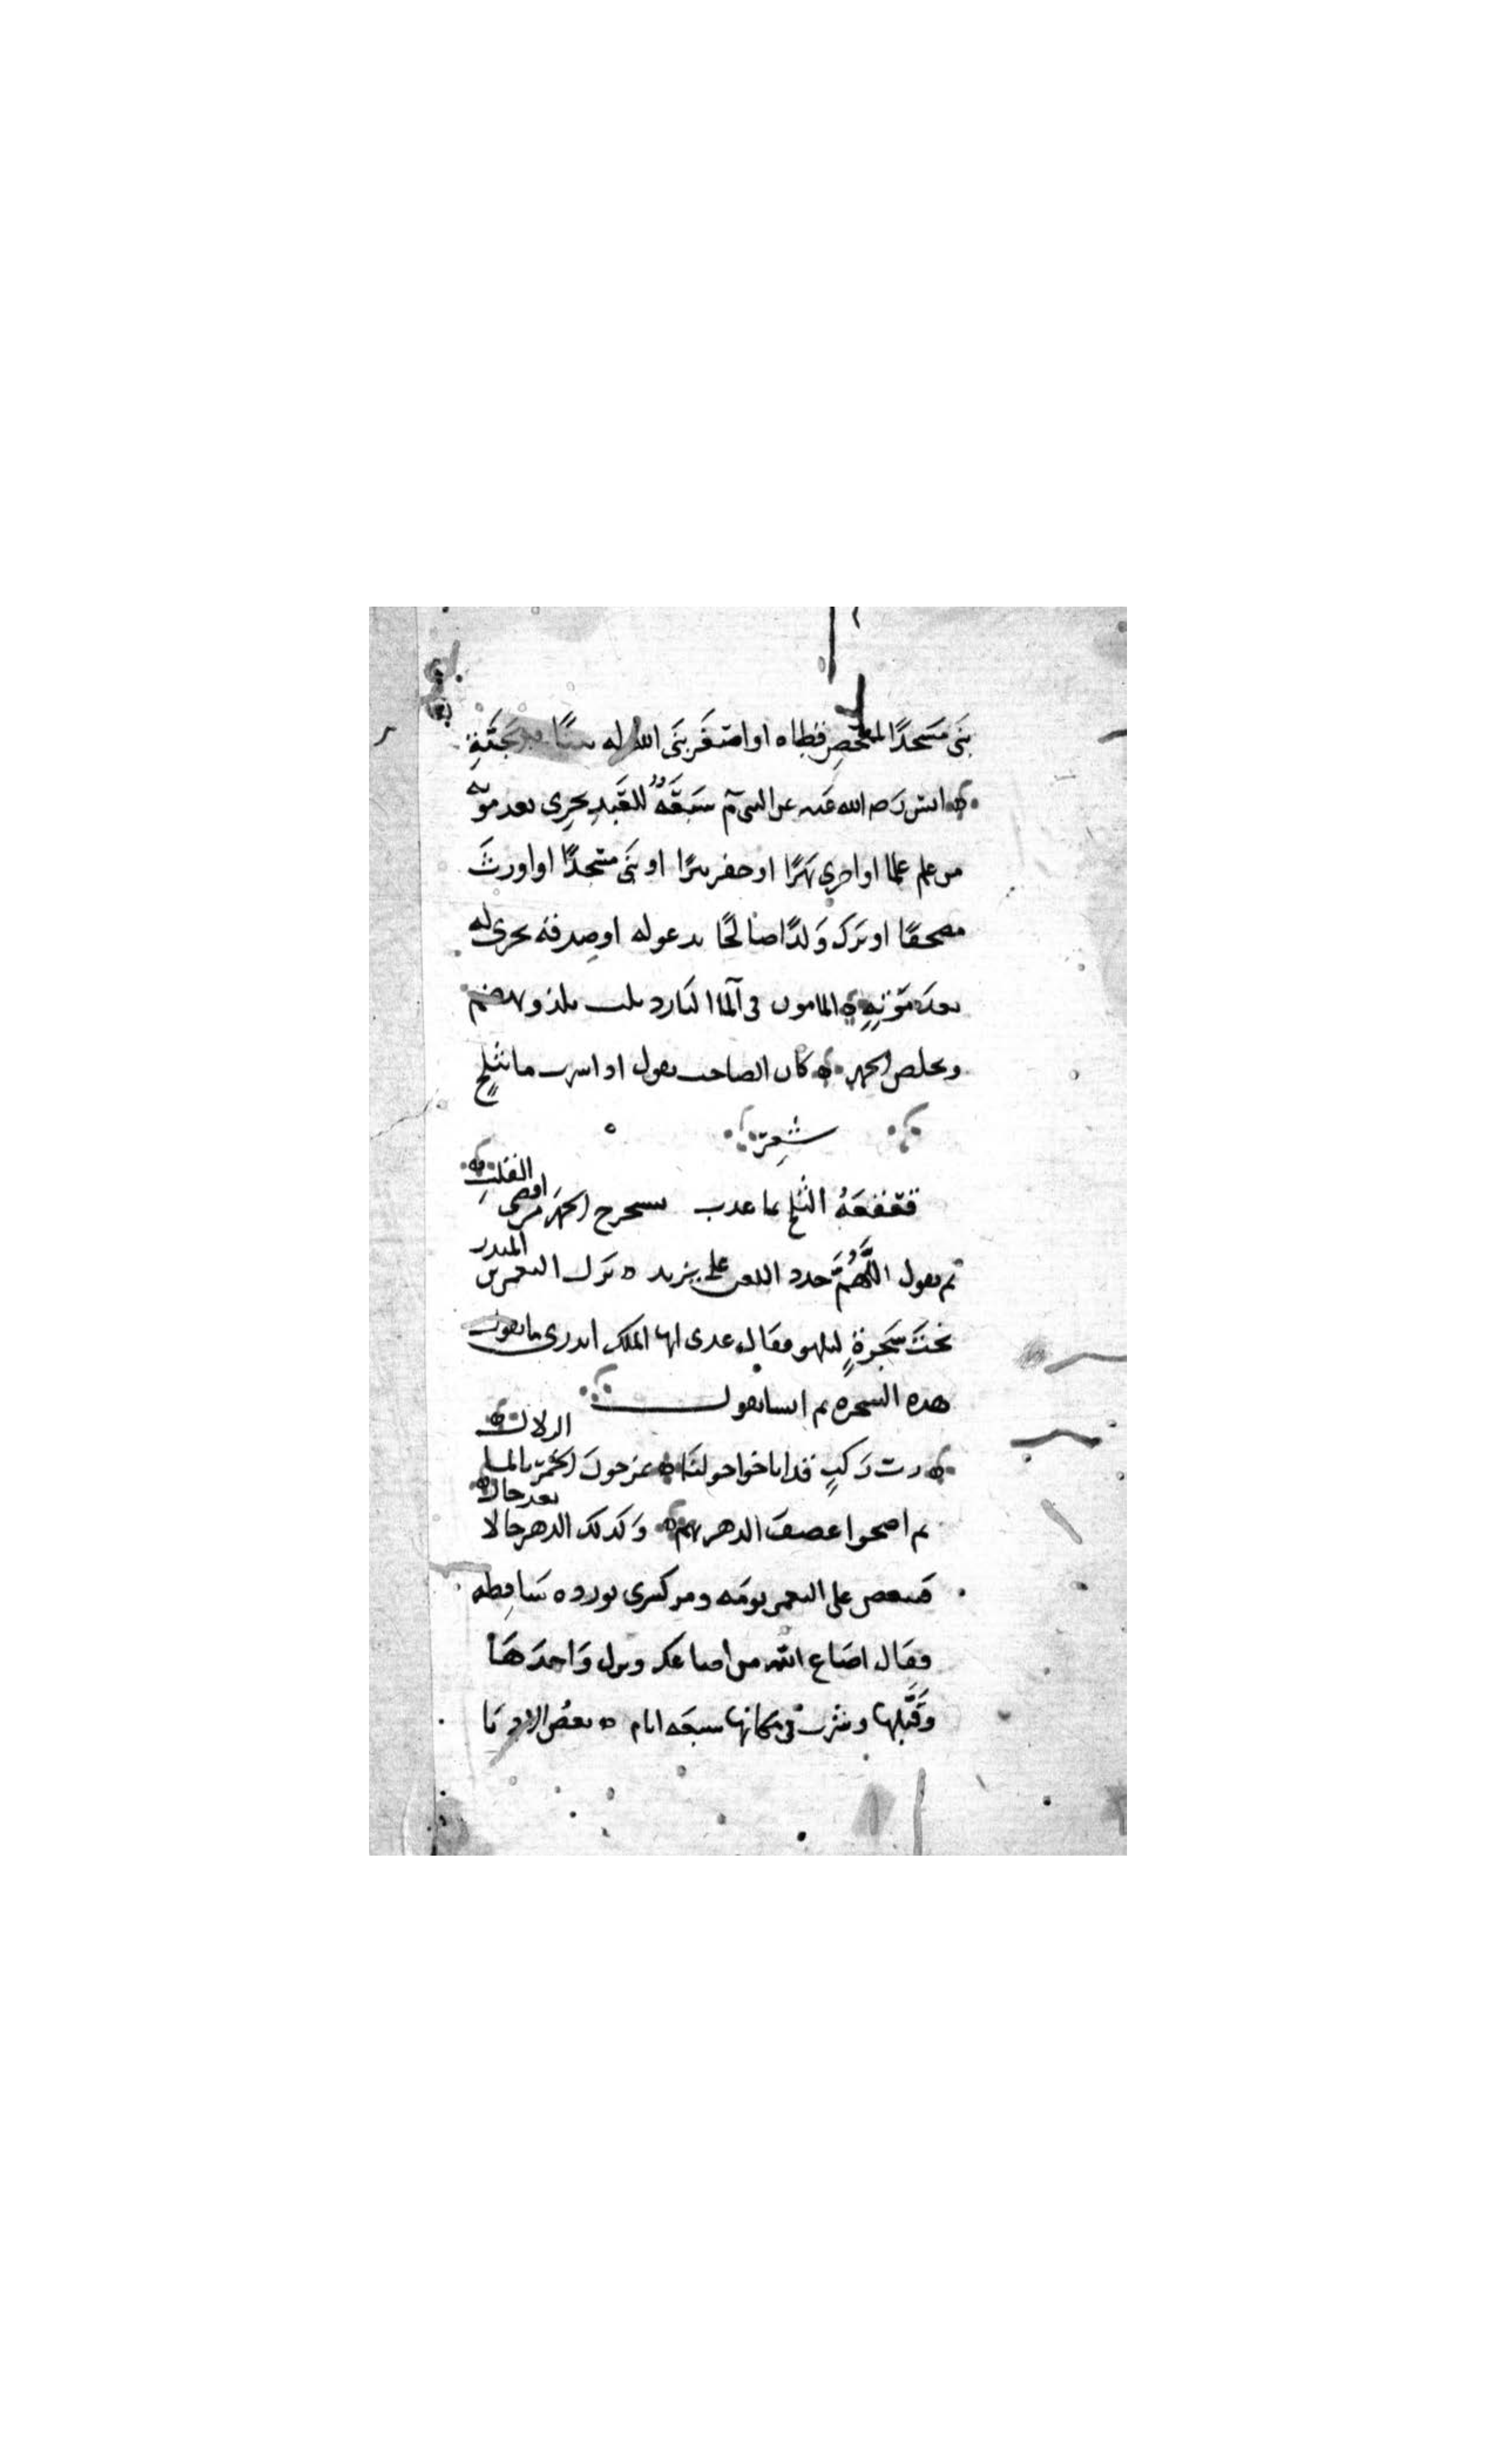 بَنَى مَسْجدًا لمفحصِ قطاه او اصغَر بَنَى الله له بيتًا في الجَنَّةِ
انس رَضي الله عَنه عن النبي م سَبعَةٌ للعَبدِ يجرِى بعد موته
من علم علما او اجرى نَهَرًا او حفر بئرًا او بَنَى مسْجدًا او اورثَ
مصحفًا او تَرَك وَلدًا صَالحًا يدعو له او صدقه تجرى له
بعدَ مَوْتِهِ المامون فى آلما البَارد ثلث يلذ و يهضم
ويخلص الحمد كان الصاحب يقول اذا شرب ما بثلجٍ
شِعرٌ
قعْقعَهُ الثَلج بما عذب تستخرج الحمَد مِن اقصى القلبِ
ثم يقول اللَّهُمَّ جدد اللعن على يزيد نَزَل النعمن بن المنذر
تحتَ شَجَرةٍ ليلهو فقال عدى ايها الملك اتدرى ما تقول
هذه الشجره ثم انشا يقول
رب رَكبٍ قد اناخوا حولنَا يمزجونَ الخَمرَ بالما الزلال
ثم اضحوا عصفَ الدهر بهم وَكَذلك الدهر حالا بعد حال
فتنغص على النعمن يومَه ومر كسرى بورده سَاقِطه
فقال اضَاع الله من اضاعك ونزل وَاخذَهَا
وَقَبَّلها وشرب فى مكانها سبعَه ايام بعض الادبَا